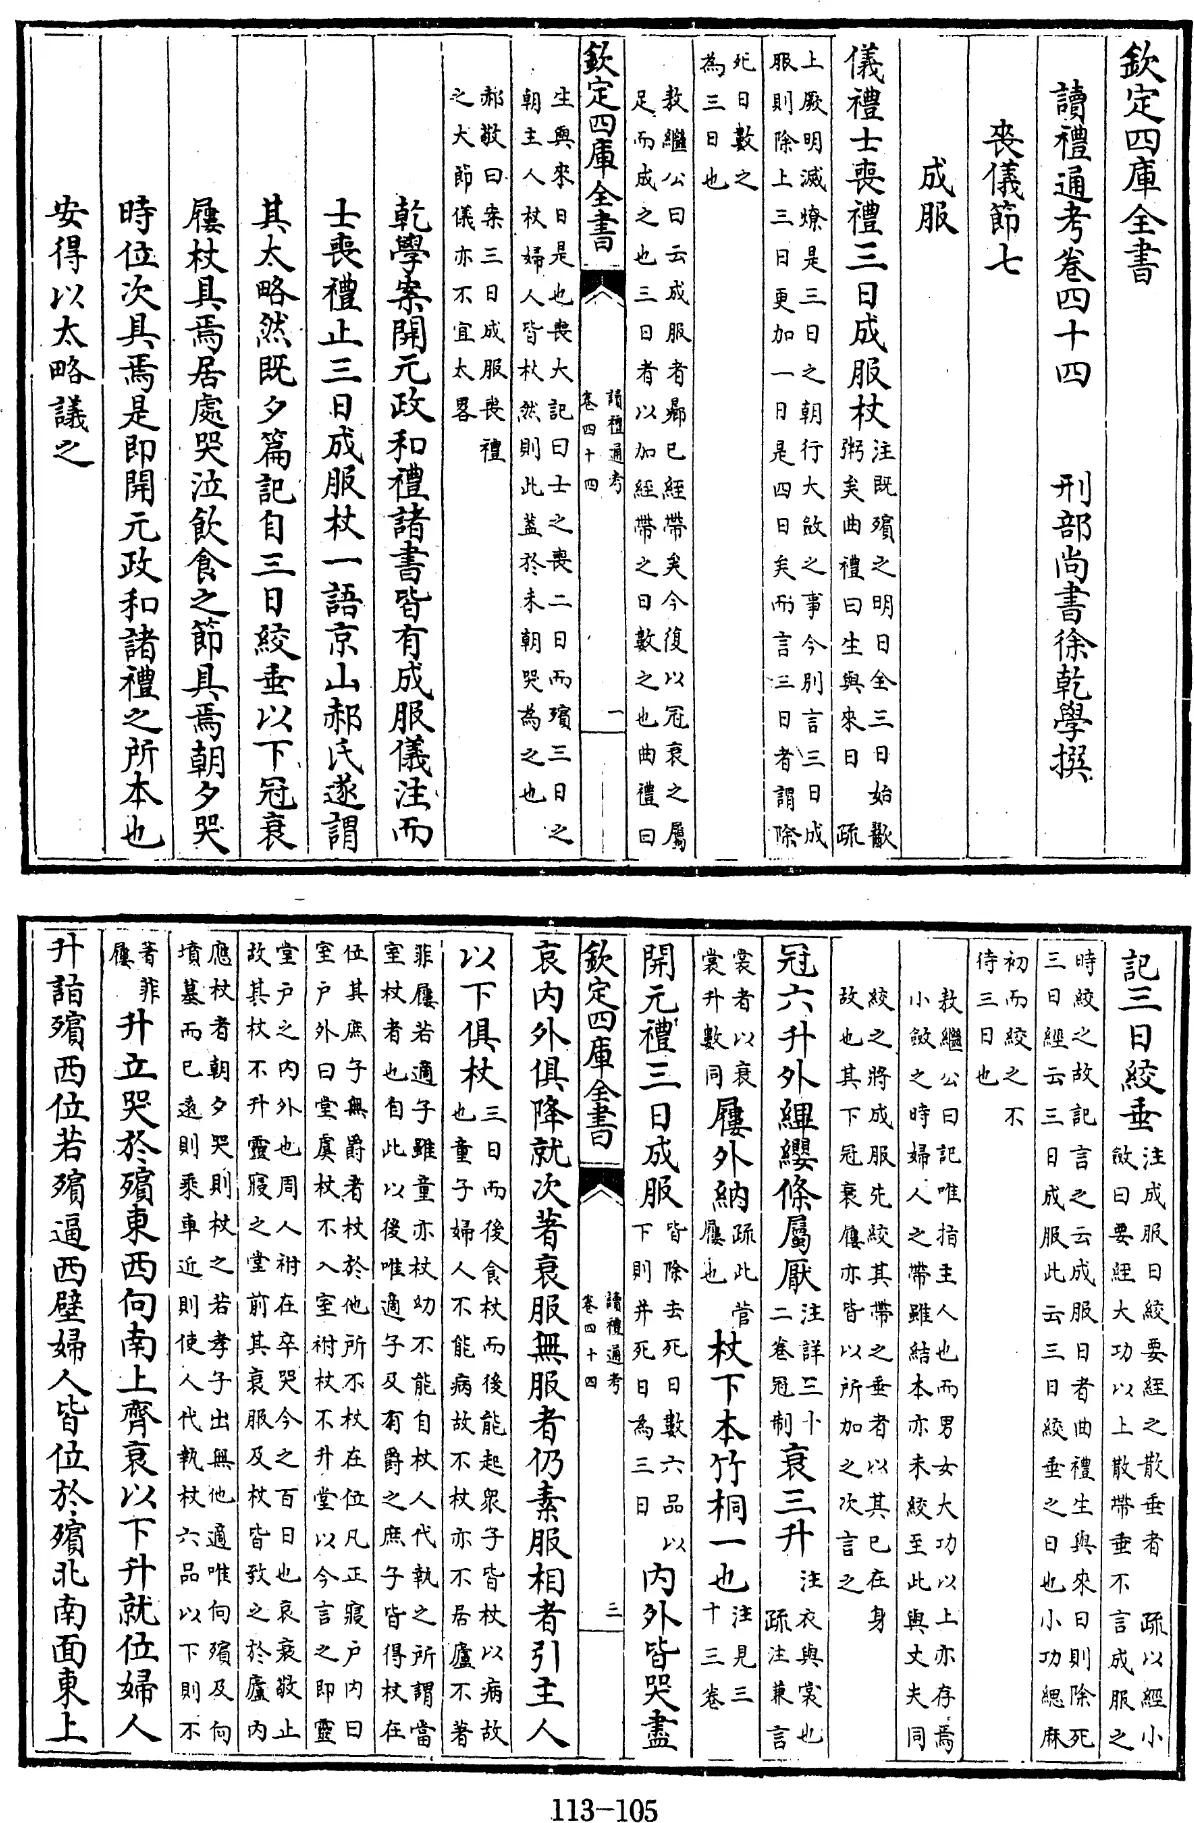 欽定四庫全書
讀禮通考卷四十四 刑部尚書徐乾學撰
喪儀節七
成服
儀禮士喪禮三日成服杖注既殯之明日全三日始歠粥矣曲禮曰生與來日 疏
上厥明滅燎是三日之朝行大斂之事今別言三日成服則除上三日更加一日是四日矣而言三日者謂除
死日數之為三日也
敖繼公曰云成服者曏已絰帶矣今復以冠衰之屬足而成之也三日者以加絰帶之日數之也曲禮曰
欽定四庫全書 讀禮通考卷四十四 一
生與來日是也喪大記曰士之喪二日而殯三日之朝主人杖婦人皆杖然則此蓋於未朝哭為之也
郝敬曰案三日成服喪禮之大節儀亦不宜太畧
乾學案開元政和禮諸書皆有成服儀注而
士喪禮止三日成服杖一語京山郝氏遂謂
其太略然既夕篇記自三日絞垂以下冠衰
屨杖具焉居處哭泣飲食之節具焉朝夕哭
時位次具焉是即開元政和諸禮之所本也
安得以太略議之
記三日絞垂注成服日絞要絰之散垂者 疏以經小斂曰要絰大功以上散帶垂不言成服之
時絞之故記言之云成服日者曲禮生與來日則除死三日經云三日成服此云三日絞垂之日也小功緦麻
初而絞之不待三日也
敖繼公曰記唯指主人也而男女大功以上亦存焉小斂之時婦人之帶雖結本亦未絞至此與丈夫同
絞之將成服先絞其帶之垂者以其已在身故也其下冠衰屨亦皆以所加之次言之
冠六升外縪纓條屬厭注詳三十二卷冠制衰三升注衣與裳也 疏注兼言
裳者以衰裳升數同屨外納疏此菅屨也杖下本竹桐一也注見三十三卷
開元禮三日成服皆除去死日數六品以下則并死日為三日內外皆哭盡
欽定四庫全書 讀禮通考卷四十四 三
哀內外俱降就次著衰服無服者仍素服相者引主人
以下俱杖三日而後食杖而後能起衆子皆杖以病故也童子婦人不能病故不杖亦不居廬不著
菲屨若適子雖童亦杖幼不能自杖人代執之所謂當室杖者也自此以後唯適子及有爵之庶子皆得杖在
位其庶子無爵者杖於他所不杖在位凡正寢戶內曰室戶外曰堂虞杖不入室祔杖不升堂以今言之即靈
堂戶之內外也周人祔在卒哭今之百日也哀衰敬止故其杖不升靈寢之堂前其衰服及杖皆致之於廬內
應杖者朝夕哭則杖之若孝子出無他適唯向殯及向墳墓而已遠則乘車近則使人代執杖六品以下則不
著菲屨升立哭於殯東西向南上齊衰以下升就位婦人
升詣殯西位若殯逼西壁婦人皆位於殯北南面東上
113-105